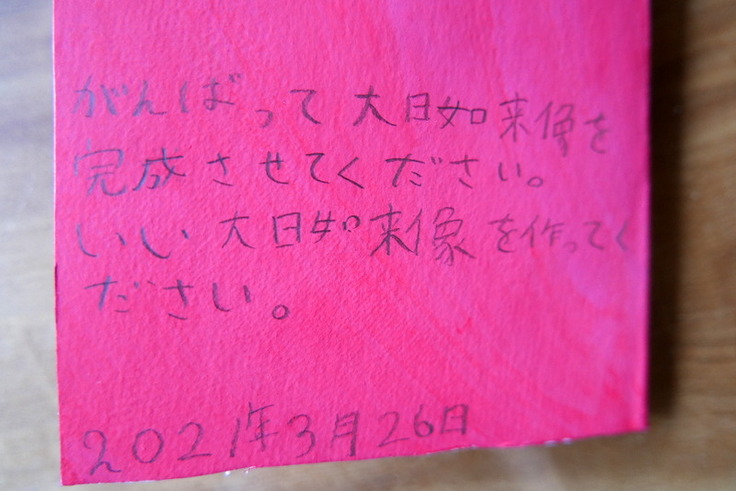 がんばって大日如来像を
完成させてください。
いい大日如来像を作ってく
ださい。
2021年3月26日